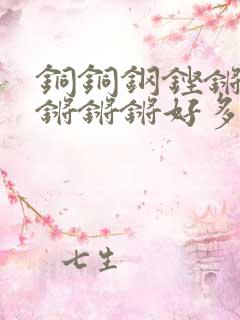 銅銅鋼鏗鏘
鏘鏘鏘好多
七生